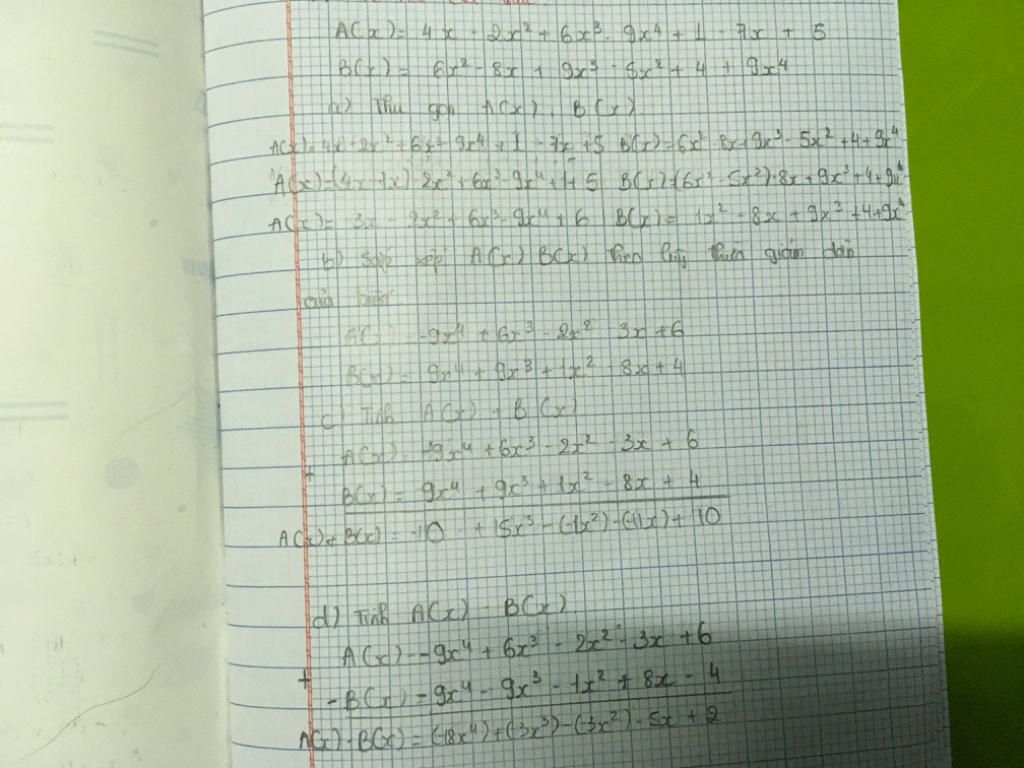 A(x) = 4x - 2x² + 6x³ - 9x⁴ + 1 - 7x + 5
B(x) = 6x² - 8x + 9x³ - 5x² + 4 + 9x⁴
a) Thu gọn A(x), B(x)
A(x) = 4x - 2x² + 6x³ - 9x⁴ + 1 - 7x + 5 B(x) = 6x² - 8x + 9x³ - 5x² + 4 + 9x⁴
A(x) = (4x - 7x) - 2x² + 6x³ - 9x⁴ + 1 + 5 B(x) = (6x² - 5x²) - 8x + 9x³ + 4 + 9x⁴
A(x) = -3x - 2x² + 6x³ - 9x⁴ + 6 B(x) = 1x² - 8x + 9x³ + 4 + 9x⁴
b) Sắp xếp A(x) B(x) theo lũy thừa giảm dần
của biến
A(x) = -9x⁴ + 6x³ - 2x² - 3x + 6
B(x) = 9x⁴ + 9x³ + 1x² - 8x + 4
c) Tính A(x) + B(x)
A(x) = -9x⁴ + 6x³ - 2x² - 3x + 6
+
B(x) = 9x⁴ + 9x³ + 1x² - 8x + 4
A(x) + B(x) = 0 + 15x³ - (-1x²) - (-11x) + 10
d) Tính A(x) - B(x)
A(x) = -9x⁴ + 6x³ - 2x² - 3x + 6
+
-B(x) = -9x⁴ - 9x³ - 1x² + 8x - 4
A(x) - B(x) = (-18x⁴) + (-3x³) - (-3x²) - 5x + 2